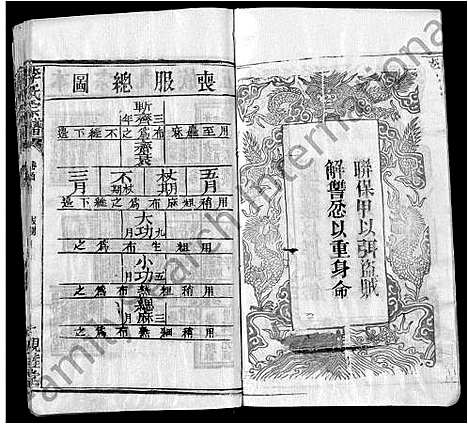 聯保甲以弭盜賊
解讐忿以重身命
喪服總圖
斬衰三年
用至麤麻布為之不縫下邊
齊衰
五月
杖期
不杖期
三月
用稍粗麻布為之縫下邊
大功九月
用粗生布為之
小功五月
用稍熟布為之
緦麻三月
用稍細熟布為之
李氏宗譜
Family Search International